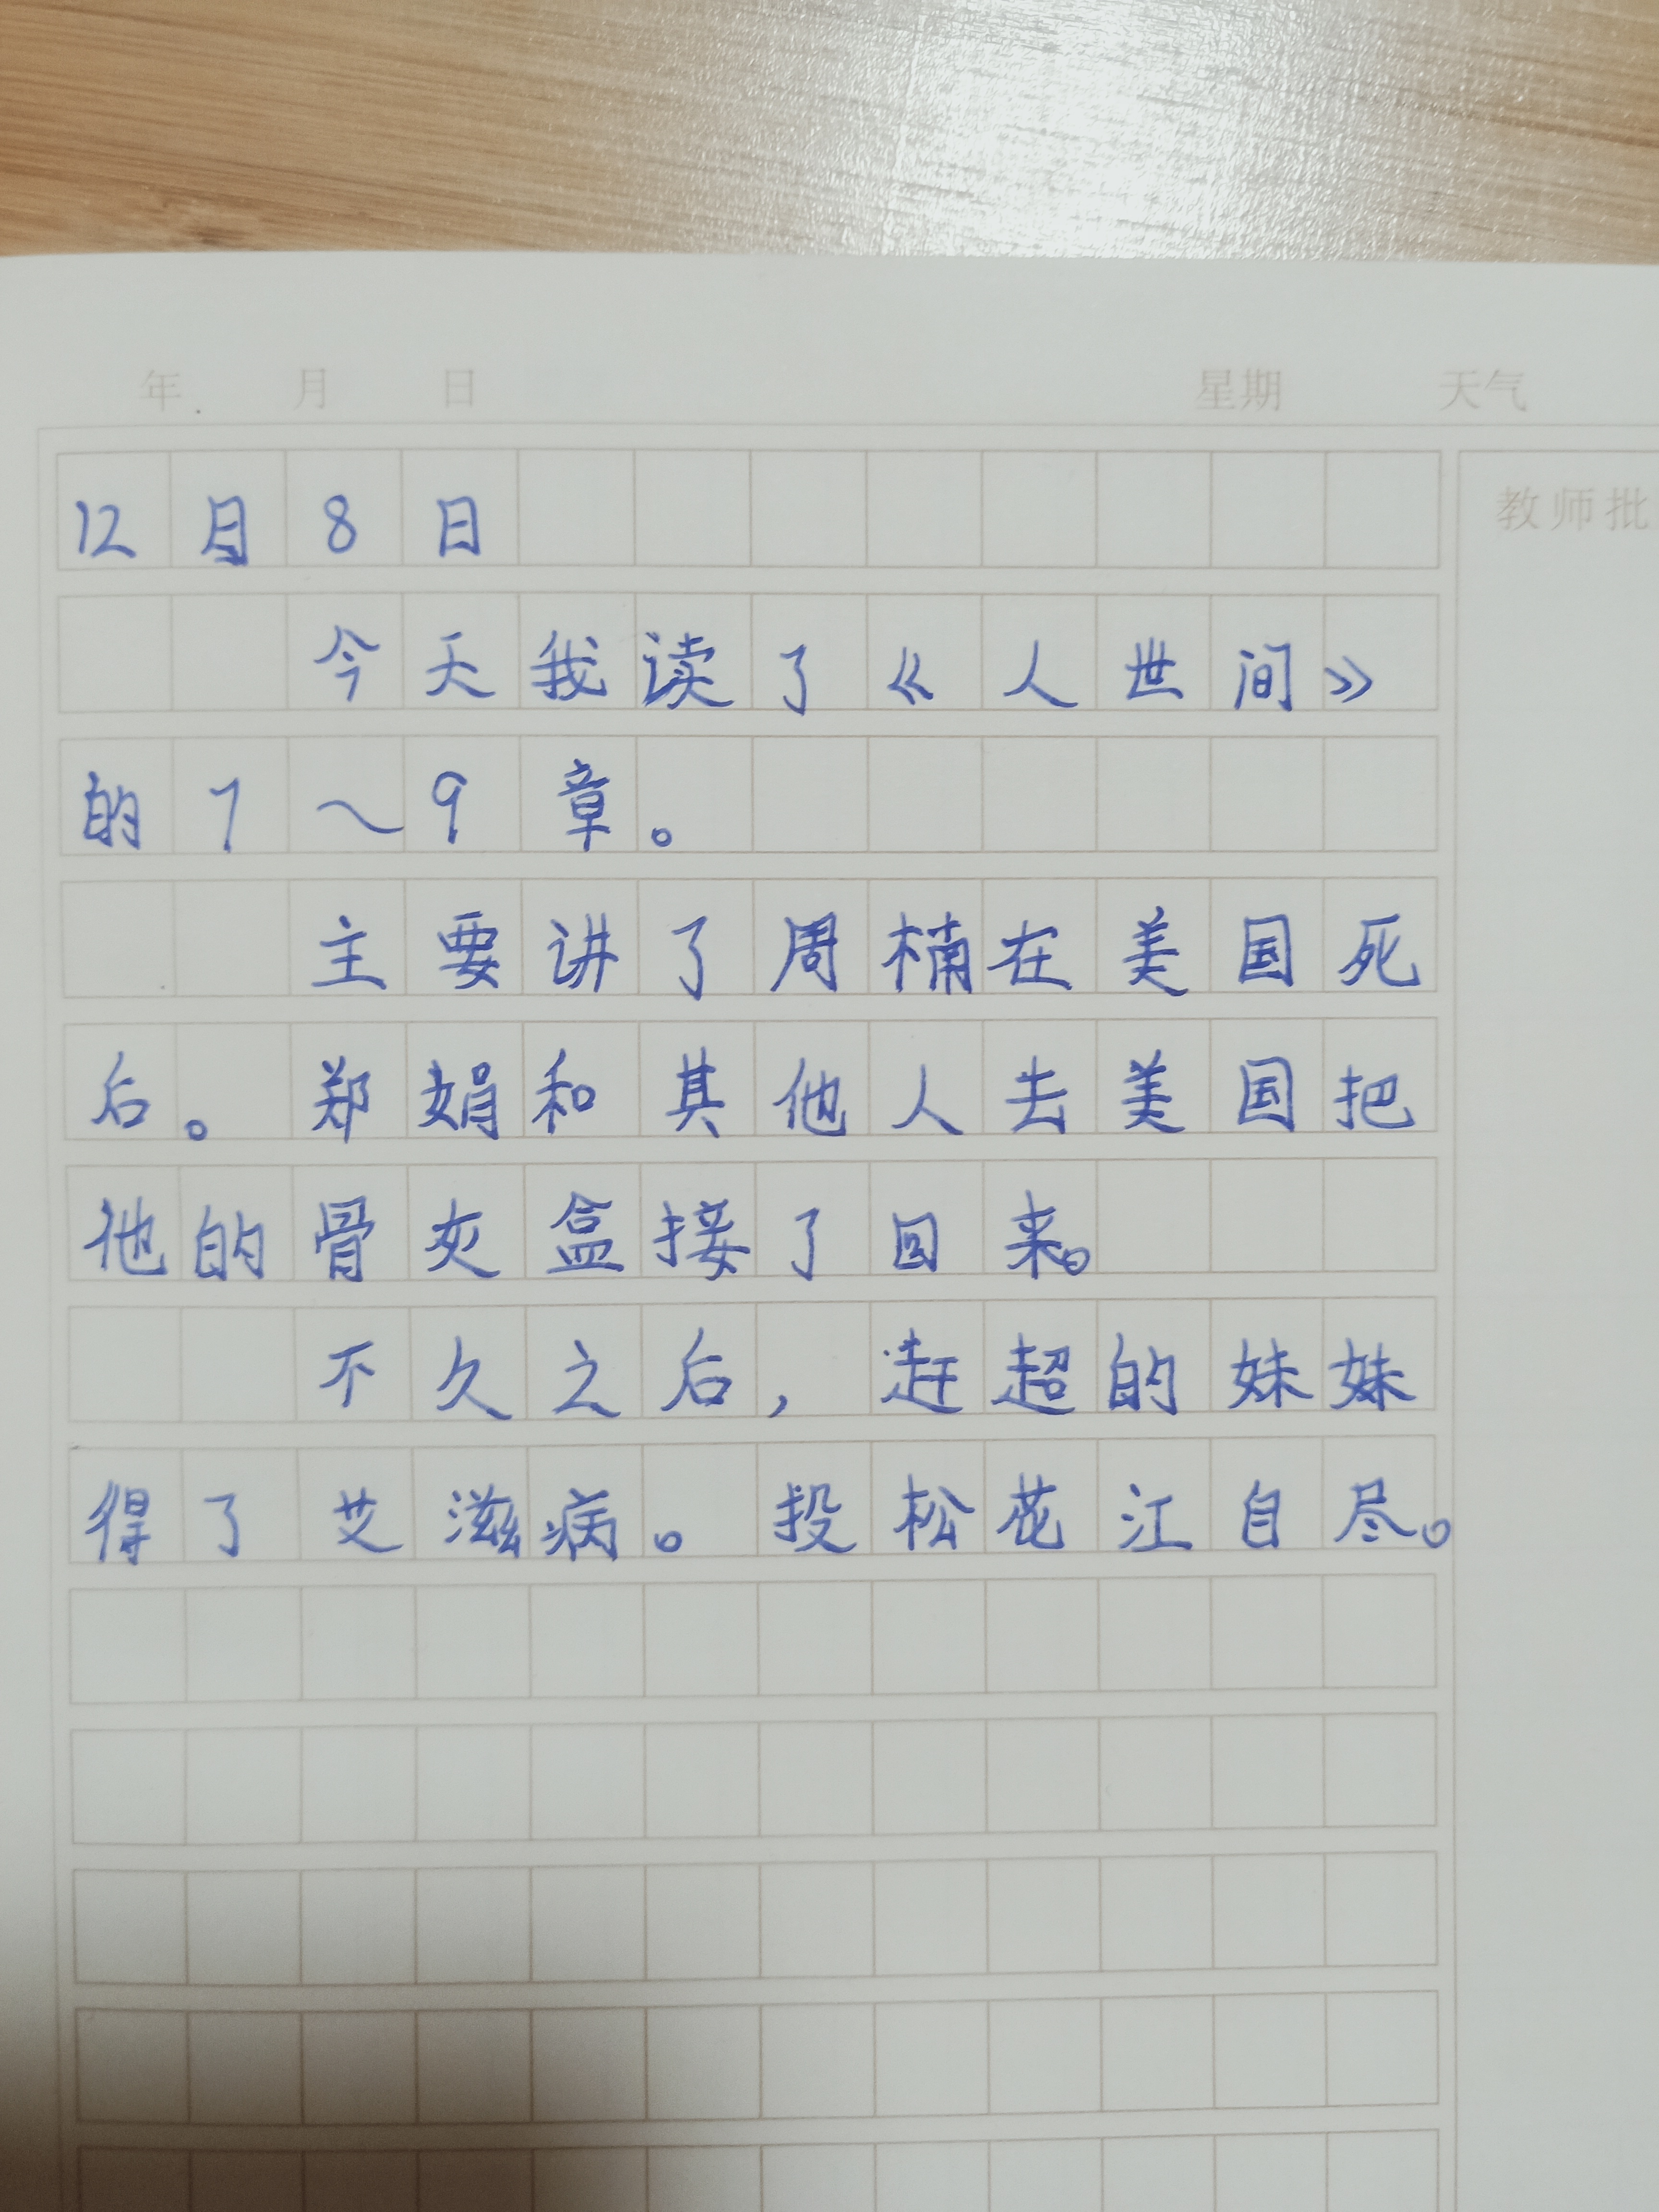 年 月 日 星期 天气
教师批
12月8日
今天我读了《人世间》
的7~9章。
主要讲了周楠在美国死
后。郑娟和其他人去美国把
他的骨灰盒接了回来。
不久之后，赶超的妹妹
得了艾滋病。投松花江自尽。